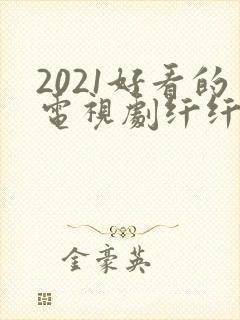 2021好看的
電視劇纤纤
金豪英